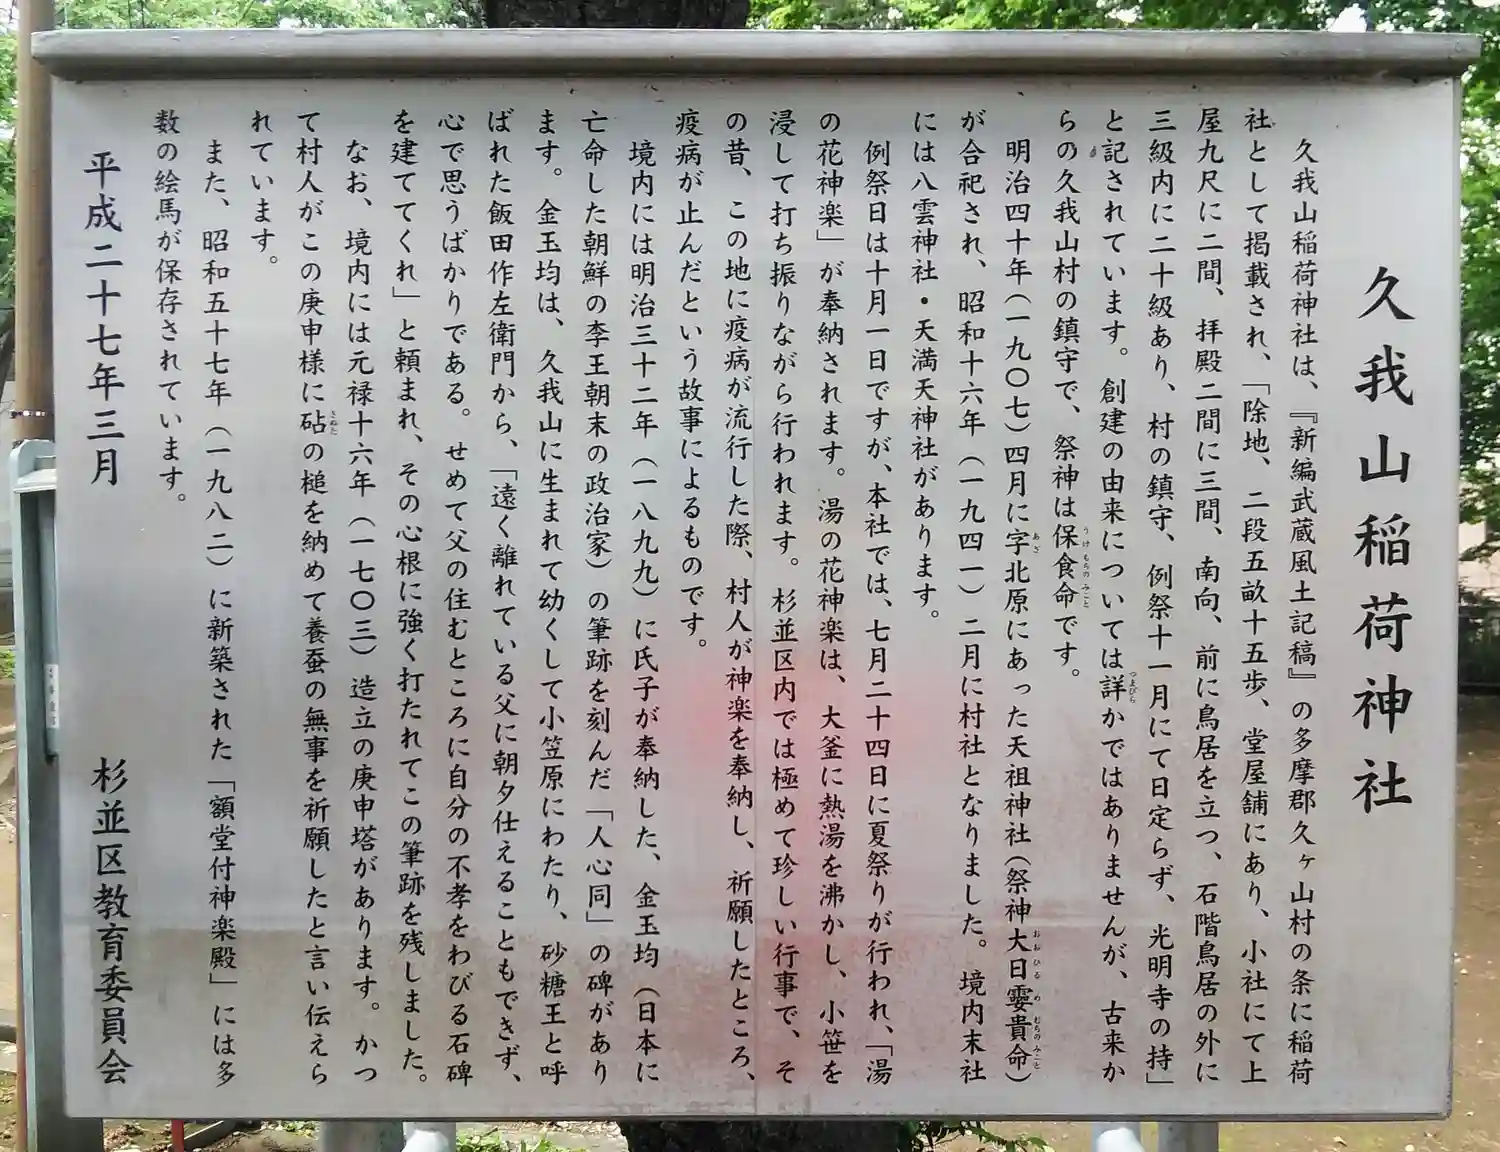 久我山稲荷神社
久我山稲荷神社は、『新編武蔵風土記稿』の多摩郡久ヶ山村の条に稲荷
社として掲載され、「除地、二段五畝十五歩、堂屋舗にあり、小社にて上
屋九尺に二間、拝殿二間に三間、南向、前に鳥居を立つ、石階鳥居の外に
三級内に二十級あり、村の鎮守、例祭十一月にて日定らず、光明寺の持」
と記されています。創建の由来については詳かではありませんが、古来か
らの久我山村の鎮守で、祭神は保食命です。
明治四十年(一九〇七)四月に字北原にあった天祖神社(祭神大日霎貴命)
が合祀され、昭和十六年(一九四一)二月に村社となりました。境内末社
には八雲神社・天満天神社があります。
例祭日は十月一日ですが、本社では、七月二十四日に夏祭りが行われ、「湯
の花神楽」が奉納されます。湯の花神楽は、大釜に熱湯を沸かし、小笹を
浸して打ち振りながら行われます。杉並区内では極めて珍しい行事で、そ
の昔、この地に疫病が流行した際、村人が神楽を奉納し、祈願したところ、
疫病が止んだという故事によるものです。
境内には明治三十二年(一八九九)に氏子が奉納した、金玉均(日本に
亡命した朝鮮の李王朝末の政治家)の筆跡を刻んだ「人心同」の碑があり
ます。金玉均は、久我山に生まれて幼くして小笠原にわたり、砂糖王と呼
ばれた飯田作左衛門から、「遠く離れている父に朝夕仕えることもできず、
心で思うばかりである。せめて父の住むところに自分の不孝をわびる石碑
を建ててくれ」と頼まれ、その心根に強く打たれてこの筆跡を残しました。
なお、境内には元禄十六年(一七〇三)造立の庚申塔があります。かつ
て村人がこの庚申様に砧の槌を納めて養蚕の無事を祈願したと言い伝えら
れています。
また、昭和五十七年(一九八二)に新築された「額堂付神楽殿」には多
数の絵馬が保存されています。
平成二十七年三月 杉並区教育委員会